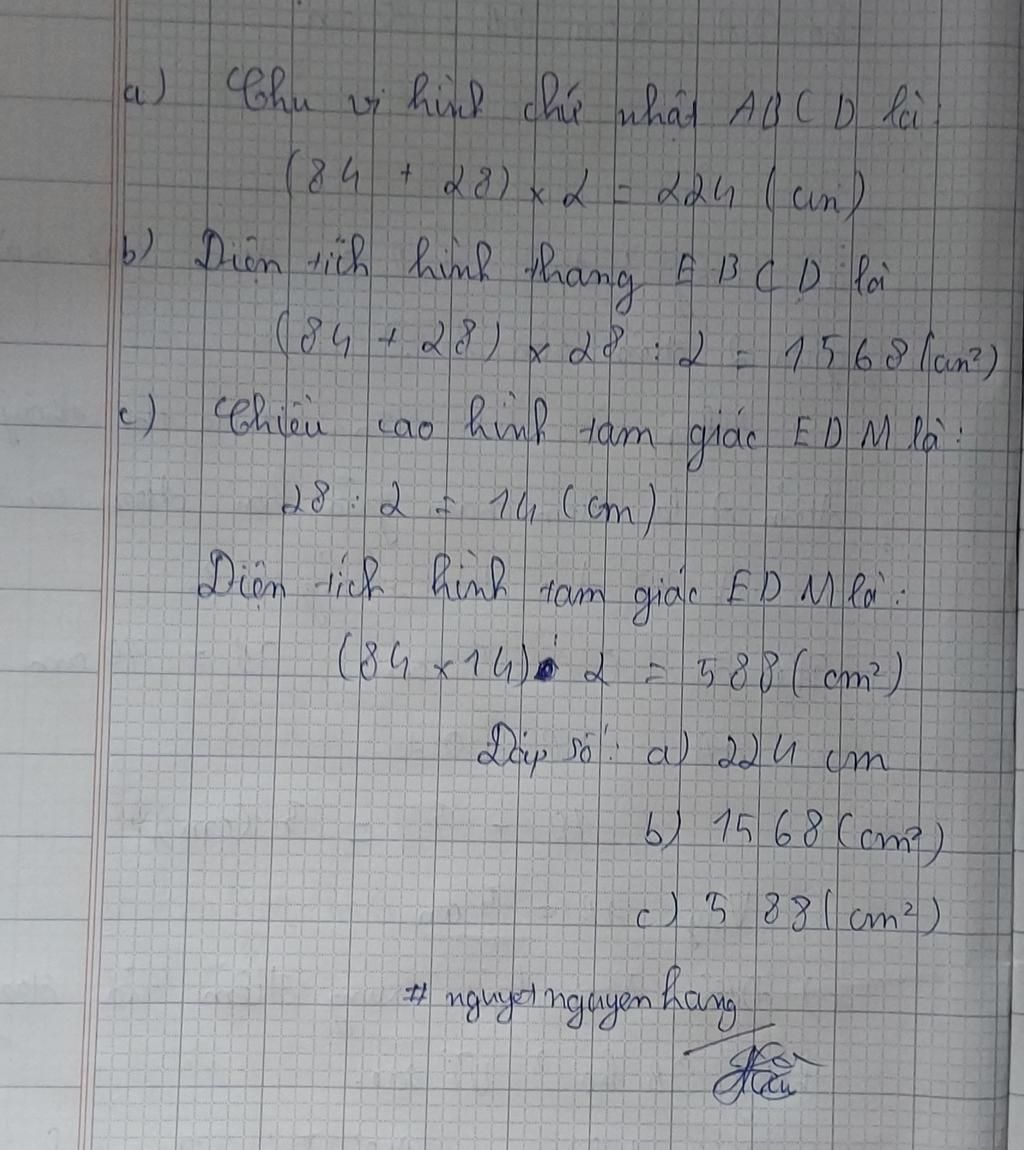 a) Chu vi hình chữ nhật ABCD là:
(84 + 28) × 2 = 224 (cm)
b) Diện tích hình thang EBCD là
(84 + 28) × 28 : 2 = 1568 (cm²)
c) Chiều cao hình tam giác EDM là:
28 : 2 = 14 (cm)
Diện tích hình tam giác EDM là:
(84 × 14) : 2 = 588 (cm²)
Đáp số: a) 224 cm
b) 1568 (cm²)
c) 588 (cm²)
# nguyetnguyenhang